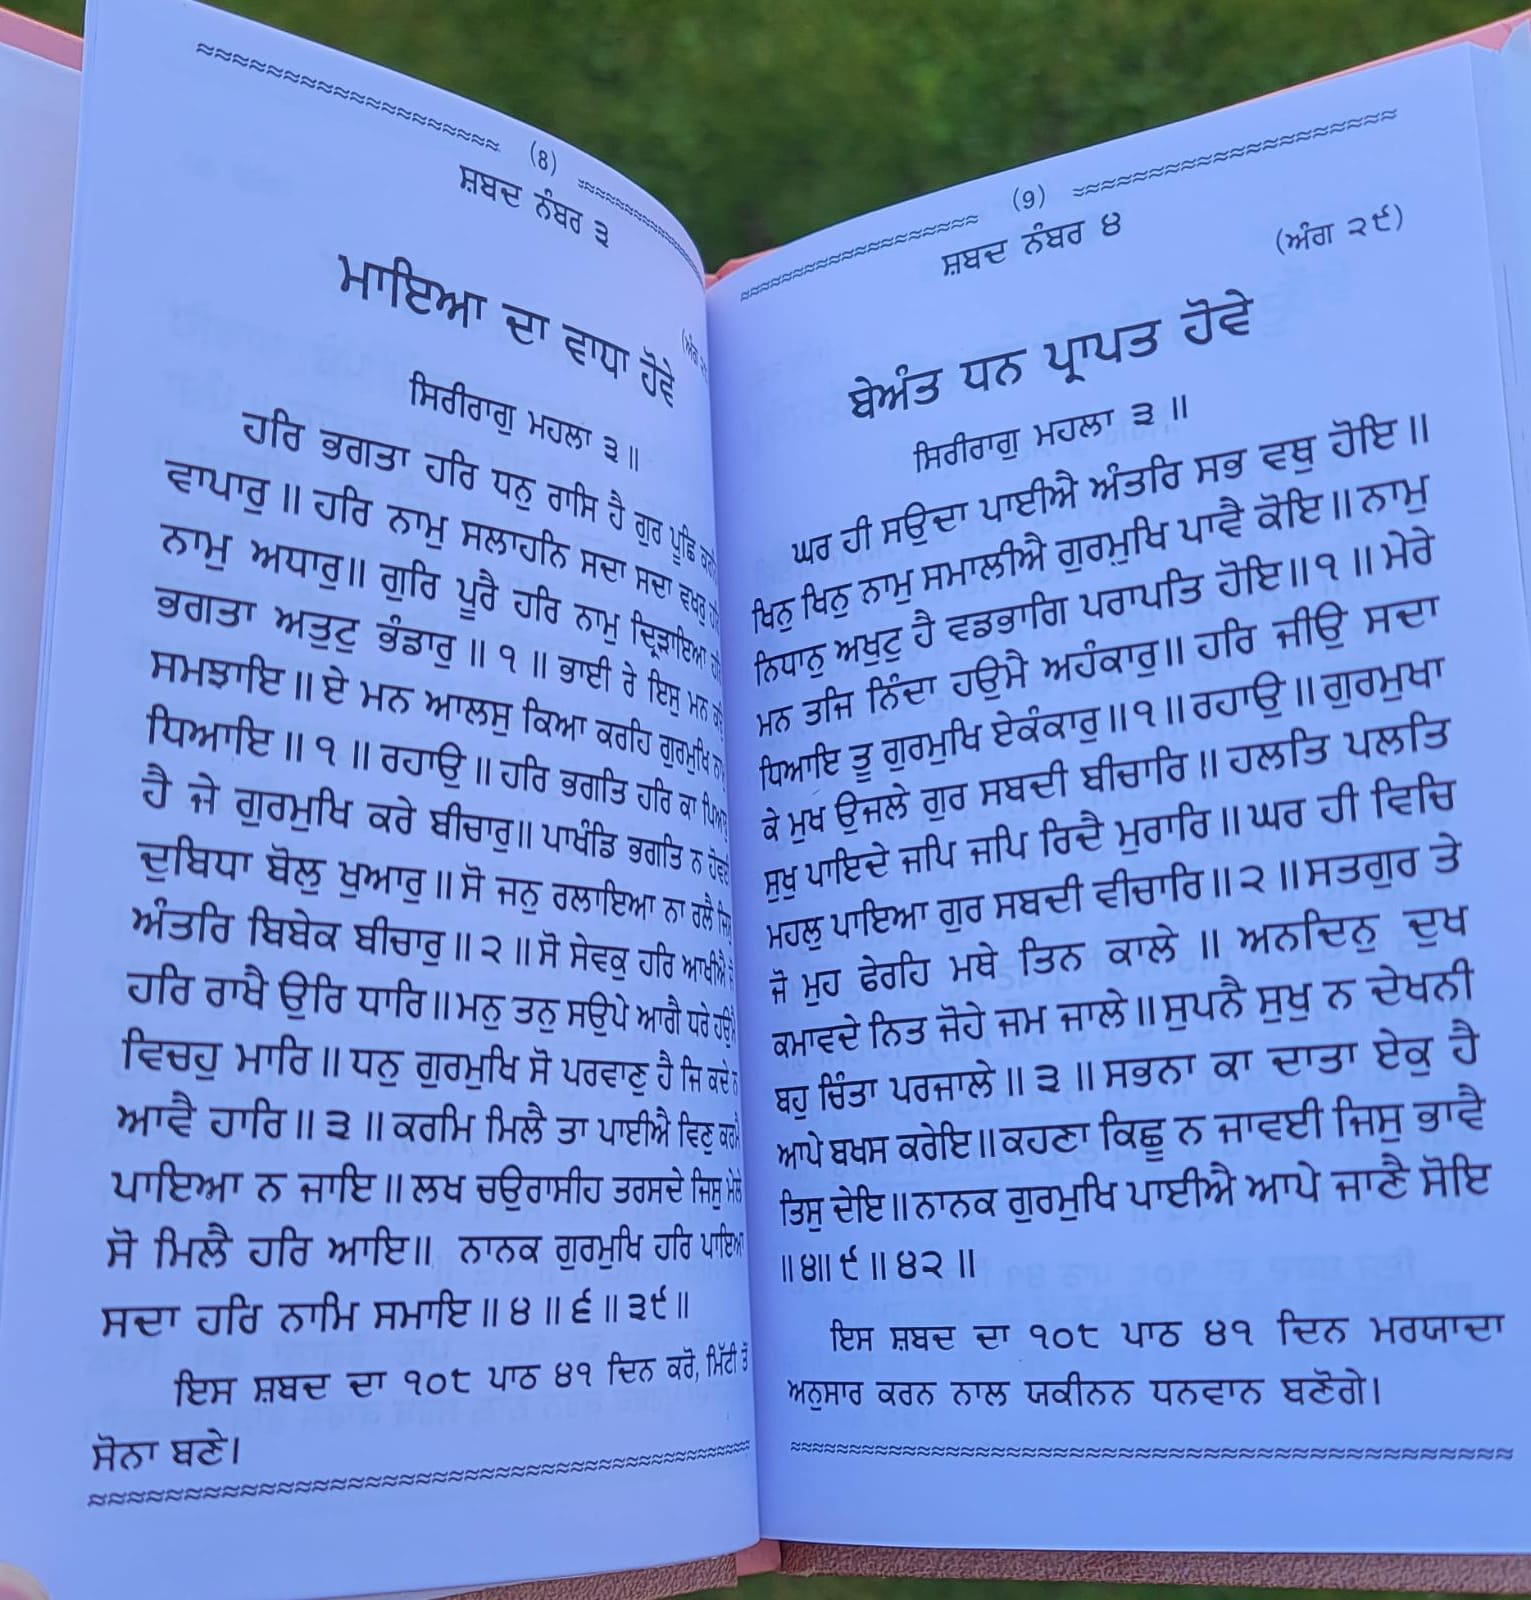 (8)
ਸ਼ਬਦ ਨੰਬਰ ੩
ਮਾਇਆ ਦਾ ਵਾਧਾ ਹੋਵੇ
ਸਿਰੀਰਾਗੁ ਮਹਲਾ ੩ ॥
ਹਰਿ ਭਗਤਾ ਹਰਿ ਧਨੁ ਰਾਸਿ ਹੈ ਗੁਰ ਪੂਛਿ
ਵਾਪਾਰੁ ॥ ਹਰਿ ਨਾਮੁ ਸਲਾਹਨਿ ਸਦਾ ਸਦਾ ਵਖਰੁ
ਨਾਮੁ ਅਧਾਰੁ॥ ਗੁਰਿ ਪੂਰੈ ਹਰਿ ਨਾਮੁ ਦ੍ਰਿੜਾਇਆ
ਭਗਤਾ ਅਤੁਟੁ ਭੰਡਾਰੁ ॥ ੧ ॥ ਭਾਈ ਰੇ ਇਸੁ ਮਨ
ਸਮਝਾਇ ॥ ਏ ਮਨ ਆਲਸੁ ਕਿਆ ਕਰਹਿ ਗੁਰਮੁਖਿ
ਧਿਆਇ ॥ ੧ ॥ ਰਹਾਉ ॥ ਹਰਿ ਭਗਤਿ ਹਰਿ ਕਾ ਪਿਆਰੁ
ਹੈ ਜੇ ਗੁਰਮੁਖਿ ਕਰੇ ਬੀਚਾਰੁ॥ ਪਾਖੰਡਿ ਭਗਤਿ ਨ ਹੋਵਈ
ਦੁਬਿਧਾ ਬੋਲੁ ਖੁਆਰੁ ॥ ਸੋ ਜਨੁ ਰਲਾਇਆ ਨਾ ਰਲੈ ਜਿਸੁ
ਅੰਤਰਿ ਬਿਬੇਕ ਬੀਚਾਰੁ ॥ ੨ ॥ ਸੋ ਸੇਵਕੁ ਹਰਿ ਆਖੀਐ ਜੋ
ਹਰਿ ਰਾਖੈ ਉਰਿ ਧਾਰਿ॥ ਮਨੁ ਤਨੁ ਸਉਪੇ ਆਗੈ ਧਰੇ ਹਉਮੈ
ਵਿਚਹੁ ਮਾਰਿ ॥ ਧਨੁ ਗੁਰਮੁਖਿ ਸੋ ਪਰਵਾਣੁ ਹੈ ਜਿ ਕਦੇ ਨ
ਆਵੈ ਹਾਰਿ ॥ ੩ ॥ ਕਰਮਿ ਮਿਲੈ ਤਾ ਪਾਈਐ ਵਿਣੁ ਕਰਮੈ
ਪਾਇਆ ਨ ਜਾਇ ॥ ਲਖ ਚਉਰਾਸੀਹ ਤਰਸਦੇ ਜਿਸੁ ਮੇਲੇ
ਸੋ ਮਿਲੈ ਹਰਿ ਆਇ॥ ਨਾਨਕ ਗੁਰਮੁਖਿ ਹਰਿ ਪਾਇਆ
ਸਦਾ ਹਰਿ ਨਾਮਿ ਸਮਾਇ ॥ ੪ ॥ ੬ ॥ ੩੯ ॥
ਇਸ ਸ਼ਬਦ ਦਾ ੧੦੮ ਪਾਠ ੪੧ ਦਿਨ ਕਰੋ, ਮਿੱਟੀ ਤੋਂ
ਸੋਨਾ ਬਣੇ।
(9)
ਸ਼ਬਦ ਨੰਬਰ ੪
(ਅੰਗ ੨੯)
ਬੇਅੰਤ ਧਨ ਪ੍ਰਾਪਤ ਹੋਵੇ
ਸਿਰੀਰਾਗੁ ਮਹਲਾ ੩ ॥
ਘਰ ਹੀ ਸਉਦਾ ਪਾਈਐ ਅੰਤਰਿ ਸਭ ਵਥੁ ਹੋਇ ॥
ਖਿਨੁ ਖਿਨੁ ਨਾਮੁ ਸਮਾਲੀਐ ਗੁਰਮੁਖਿ ਪਾਵੈ ਕੋਇ ॥ ਨਾਮੁ
ਨਿਧਾਨੁ ਅਖੁਟੁ ਹੈ ਵਡਭਾਗਿ ਪਰਾਪਤਿ ਹੋਇ ॥ ੧ ॥ ਮੇਰੇ
ਮਨ ਤਜਿ ਨਿੰਦਾ ਹਉਮੈ ਅਹੰਕਾਰੁ॥ ਹਰਿ ਜੀਉ ਸਦਾ
ਧਿਆਇ ਤੂ ਗੁਰਮੁਖਿ ਏਕੰਕਾਰੁ ॥ ੧ ॥ ਰਹਾਉ ॥ ਗੁਰਮੁਖਾ
ਕੇ ਮੁਖ ਉਜਲੇ ਗੁਰ ਸਬਦੀ ਬੀਚਾਰਿ ॥ ਹਲਤਿ ਪਲਤਿ
ਸੁਖੁ ਪਾਇਦੇ ਜਪਿ ਜਪਿ ਰਿਦੈ ਮੁਰਾਰਿ ॥ ਘਰ ਹੀ ਵਿਚਿ
ਮਹਲੁ ਪਾਇਆ ਗੁਰ ਸਬਦੀ ਵੀਚਾਰਿ ॥ ੨ ॥ ਸਤਗੁਰ ਤੇ
ਜੋ ਮੁਹ ਫੇਰਹਿ ਮਥੇ ਤਿਨ ਕਾਲੇ ॥ ਅਨਦਿਨੁ ਦੁਖ
ਕਮਾਵਦੇ ਨਿਤ ਜੋਹੇ ਜਮ ਜਾਲੇ ॥ ਸੁਪਨੈ ਸੁਖੁ ਨ ਦੇਖਨੀ
ਬਹੁ ਚਿੰਤਾ ਪਰਜਾਲੇ ॥ ੩ ॥ ਸਭਨਾ ਕਾ ਦਾਤਾ ਏਕੁ ਹੈ
ਆਪੇ ਬਖਸ ਕਰੇਇ॥ ਕਹਣਾ ਕਿਛੂ ਨ ਜਾਵਈ ਜਿਸੁ ਭਾਵੈ
ਤਿਸੁ ਦੇਇ॥ ਨਾਨਕ ਗੁਰਮੁਖਿ ਪਾਈਐ ਆਪੇ ਜਾਣੈ ਸੋਇ
॥ ੪॥ ੯ ॥ ੪੨ ॥
ਇਸ ਸ਼ਬਦ ਦਾ ੧੦੮ ਪਾਠ ੪੧ ਦਿਨ ਮਰਯਾਦਾ
ਅਨੁਸਾਰ ਕਰਨ ਨਾਲ ਯਕੀਨਨ ਧਨਵਾਨ ਬਣੋਗੇ।